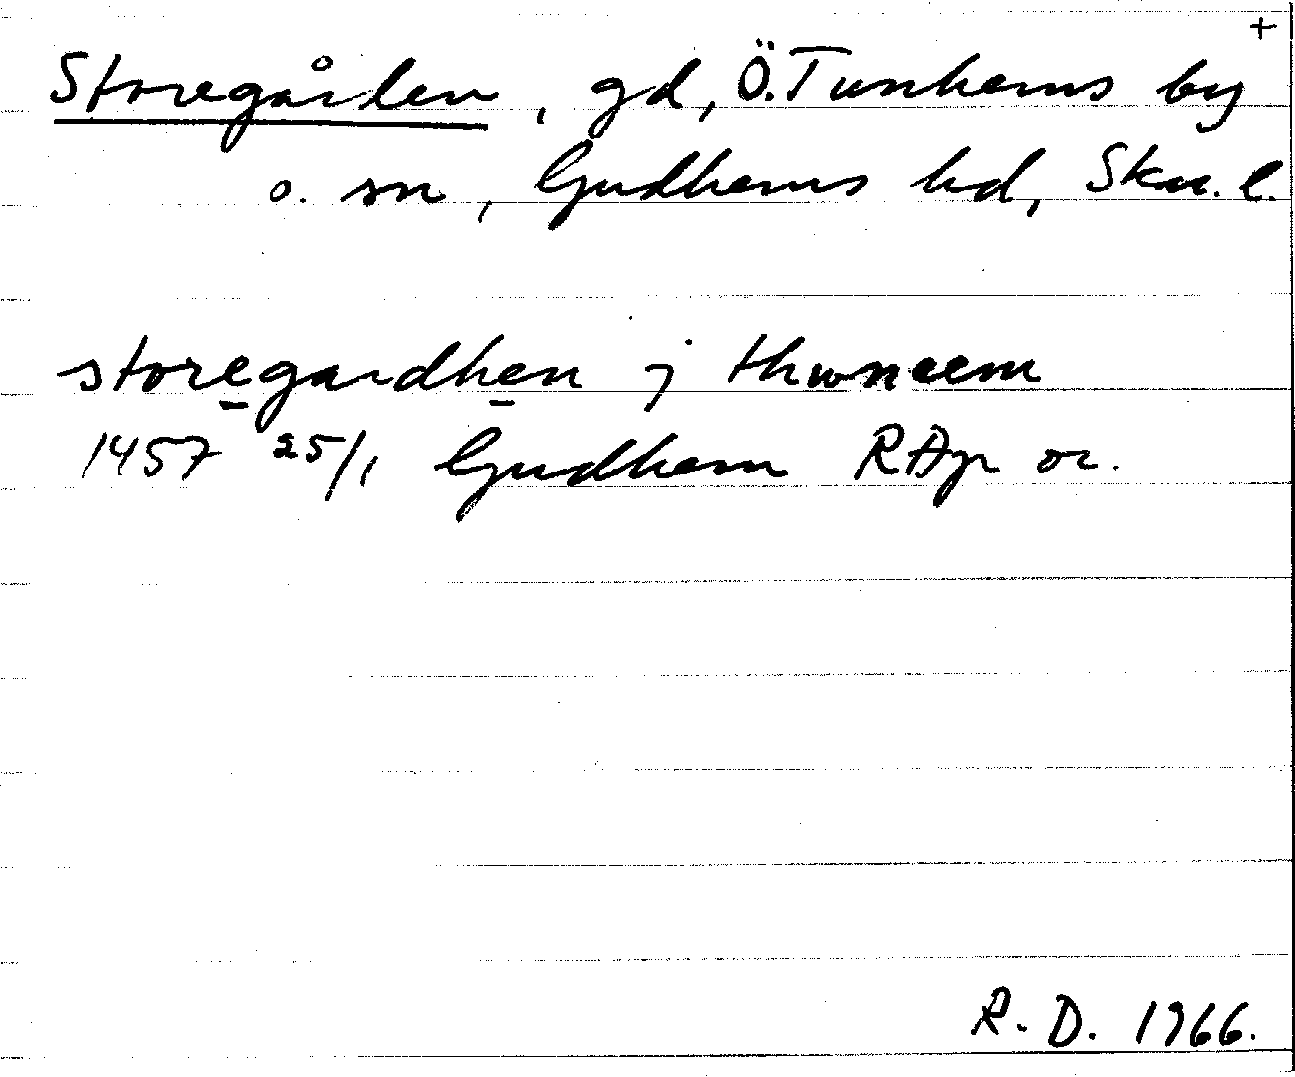 +
Storegården, gd, Ö. Tunhems by
o. sn, Gudhems hd, Skar. l.
storegardhen j thwneem
1457 25/1 Gudhem RAp or.
R. D. 1966.